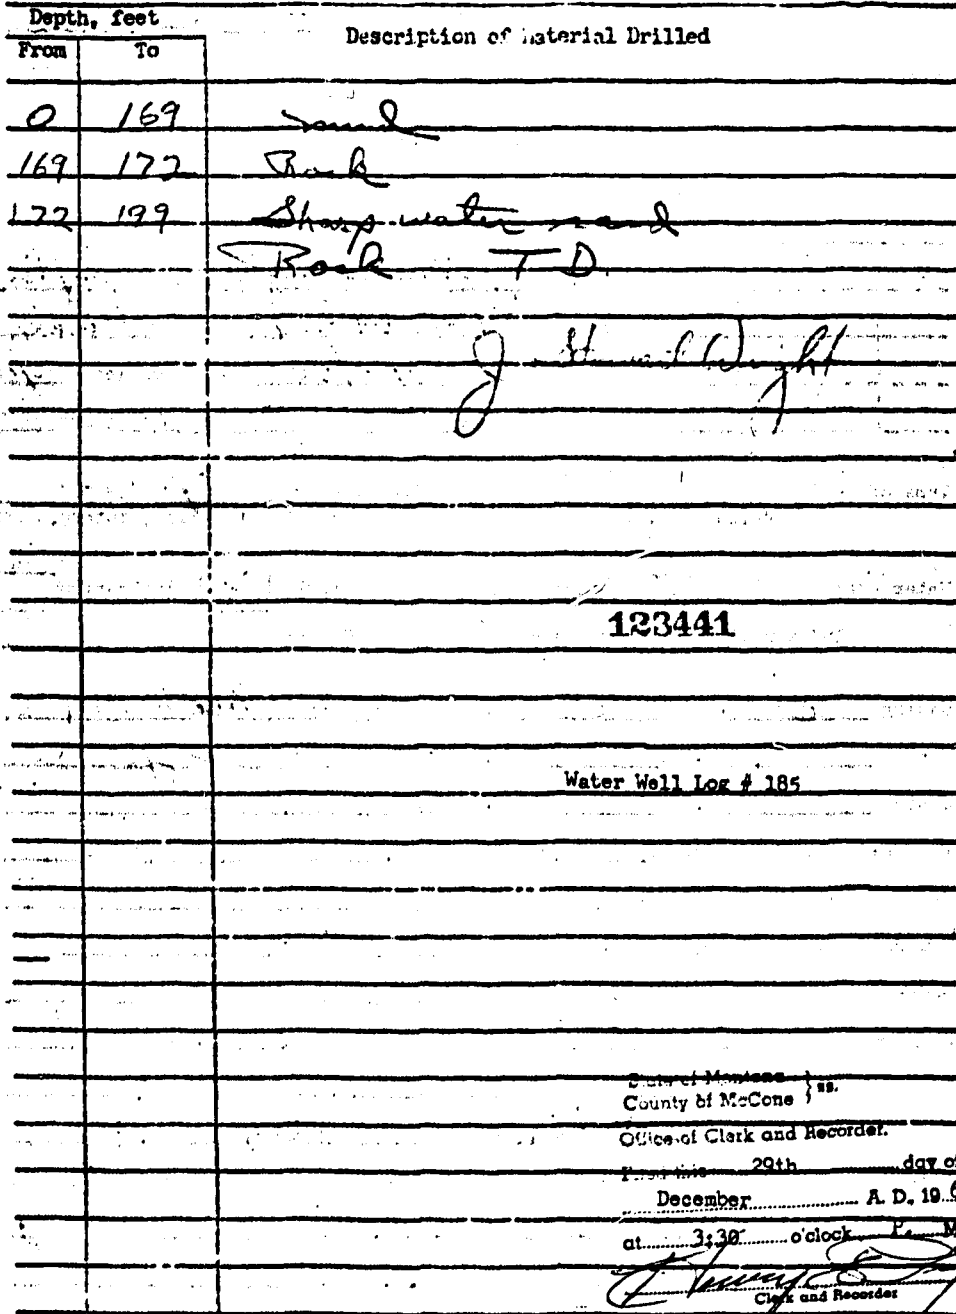 Depth, feet
From To Description of Material Drilled
0 169 Sand
169 172 Rock
172 199 Sharp water sand
Rock T D.
J. Wright
123441
Water Well Log # 185
State of Montana } ss.
County of McCone
Office of Clerk and Recorder.
Filed this 29th day of
December A. D. 19 6
at 3:30 o'clock P. M
Clerk and Recorder